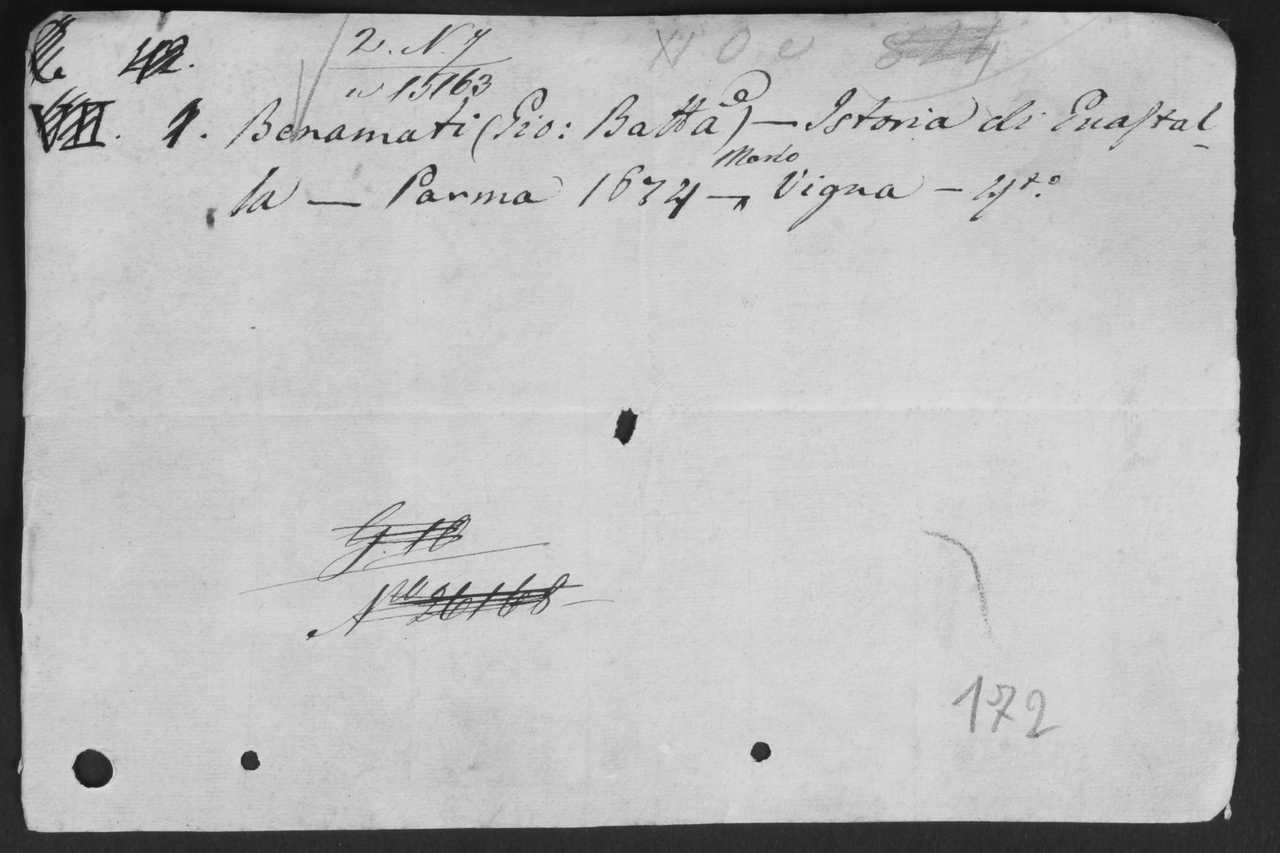 42.
2. N. 7
n 15163
VIII. 1. Benamati (Gio: Batta) — Istoria di Guastal
la — Parma 1674 — Mario Vigna — 4to.
G. 10
Nro 26168
172